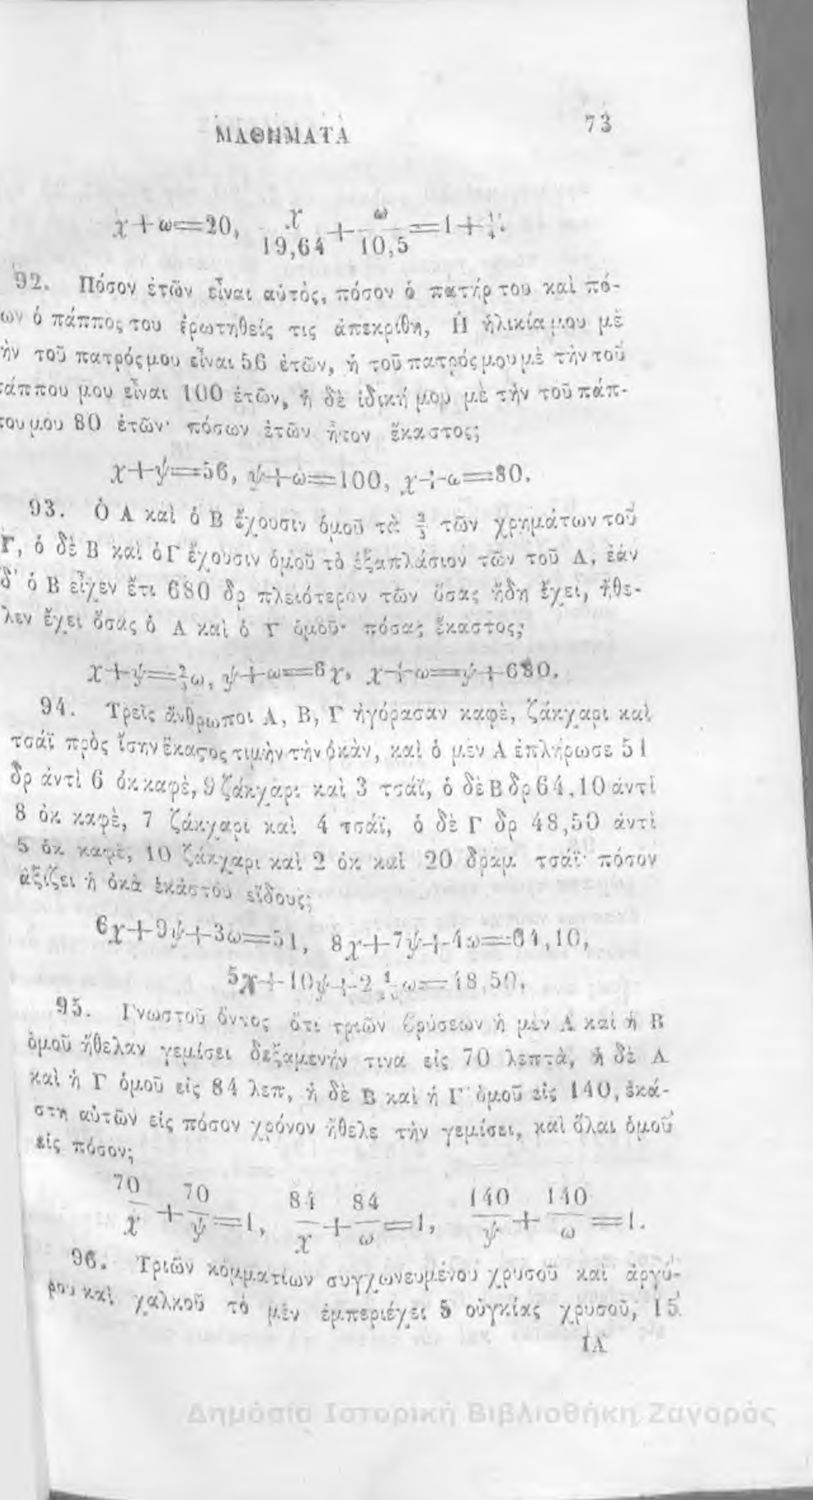 ΜΑΘΗΜΑΤΑ 73
χ+ω=20, χ/19,64 + ω/10,5 =1+
92. Πόσον ἐτῶν εἶναι αὐτὸς, πόσον ὁ πατήρ του καὶ πό-
ων ὁ πάππος του ἐρωτηθείς τις ἀπεκρίθη, Ἡ ἡλικία μου μὲ
ὴν τοῦ πατρός μου εἶναι 56 ἐτῶν, ἡ τοῦ πατρός μου μὲ τὴν τοῦ
άππου μου εἶναι 100 ἐτῶν, ἡ δὲ ἰδική μου μὲ τὴν τοῦ πάπ-
που μου 80 ἐτῶν· πόσων ἐτῶν ἦτον ἕκαστος;
χ+ψ=56, ψ+ω=100, χ+ω=80.
93. Ὁ Α καὶ ὁ Β ἔχουσιν ὁμοῦ τὰ 2/3 τῶν χρημάτων τοῦ
Γ, ὁ δὲ Β καὶ ὁ Γ ἔχουσιν ὁμοῦ τὸ ἑξαπλάσιον τῶν τοῦ Α, ἐὰν
δ' ὁ Β εἶχεν ἔτι 680 δρ πλειότερον τῶν ὅσας ἤδη ἔχει, ἤθε-
λεν ἔχει ὅσας ὁ Α καὶ ὁ Γ ὁμοῦ· πόσας ἕκαστος;
χ+ψ=2/3ω, ψ+ω=6χ, χ+ω=ψ+680.
94. Τρεῖς ἄνθρωποι Α, Β, Γ ἠγόρασαν καφὲ, ζάχχαρι καὶ
τσάϊ πρὸς ἴσην ἕκαστος τιμὴν τὴν ὀκὰν, καὶ ὁ μὲν Α ἐπλήρωσε 51
δρ ἀντὶ 6 ὀκ καφὲ, 9 ζάκχαρι καὶ 3 τσάϊ, ὁ δὲ Β δρ 64,10 ἀντὶ
8 ὀκ καφὲ, 7 ζάκχαρι καὶ 4 τσάϊ, ὁ δὲ Γ δρ 48,50 ἀντὶ
5 ὀκ καφὲ, 10 ζάκχαρι καὶ 2 ὀκ καὶ 20 δραμ τσάϊ· πόσον
ἀξίζει ἡ ὀκὰ ἑκάστου εἴδους;
6χ+9ψ+3ω=51, 8χ+7ψ+4ω=64,10,
5χ+10ψ+2 ω=48,50.
95. Γνωστοῦ ὄντος ὅτι τριῶν βρύσεων ἡ μὲν Α καὶ ἡ Β
ὁμοῦ ἤθελαν γεμίσει δεξαμενήν τινα εἰς 70 λεπτὰ, ἡ δὲ Α
καὶ ἡ Γ ὁμοῦ εἰς 84 λεπ, ἡ δὲ Β καὶ ἡ Γ ὁμοῦ εἰς 140, ἑκά-
στη αὐτῶν εἰς πόσον χρόνον ἤθελε τὴν γεμίσει, καὶ ὅλαι ὁμοῦ
εἰς πόσον;
70/χ + 70/ψ =1, 84/χ + 84/ω =1, 140/ψ + 140/ω =1.
96. Τριῶν κομματίων συγχωνευμένου χρυσοῦ καὶ ἀργύ-
ρου καὶ χαλκοῦ τὸ μὲν ἐμπεριέχει 5 οὐγκίας χρυσοῦ, 15
ΙΑ
Δημόσια Ιστορική Βιβλιοθήκη Ζαγοράς